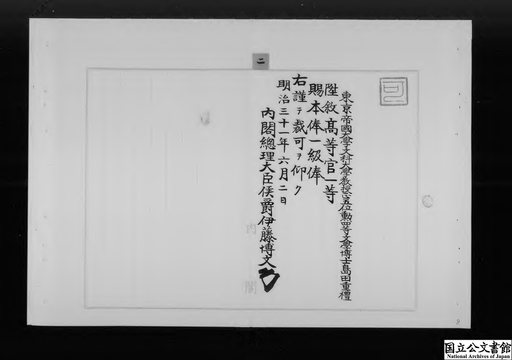 二
東京帝國大學文科大學教授正五位勳四等文學博士島田重禮
陞敘高等官一等
賜本俸一級俸
右謹ヲ裁可ヲ仰ク
明治三十一年六月二日
內閣總理大臣侯爵伊藤博文
国立公文書館
National Archives of Japan